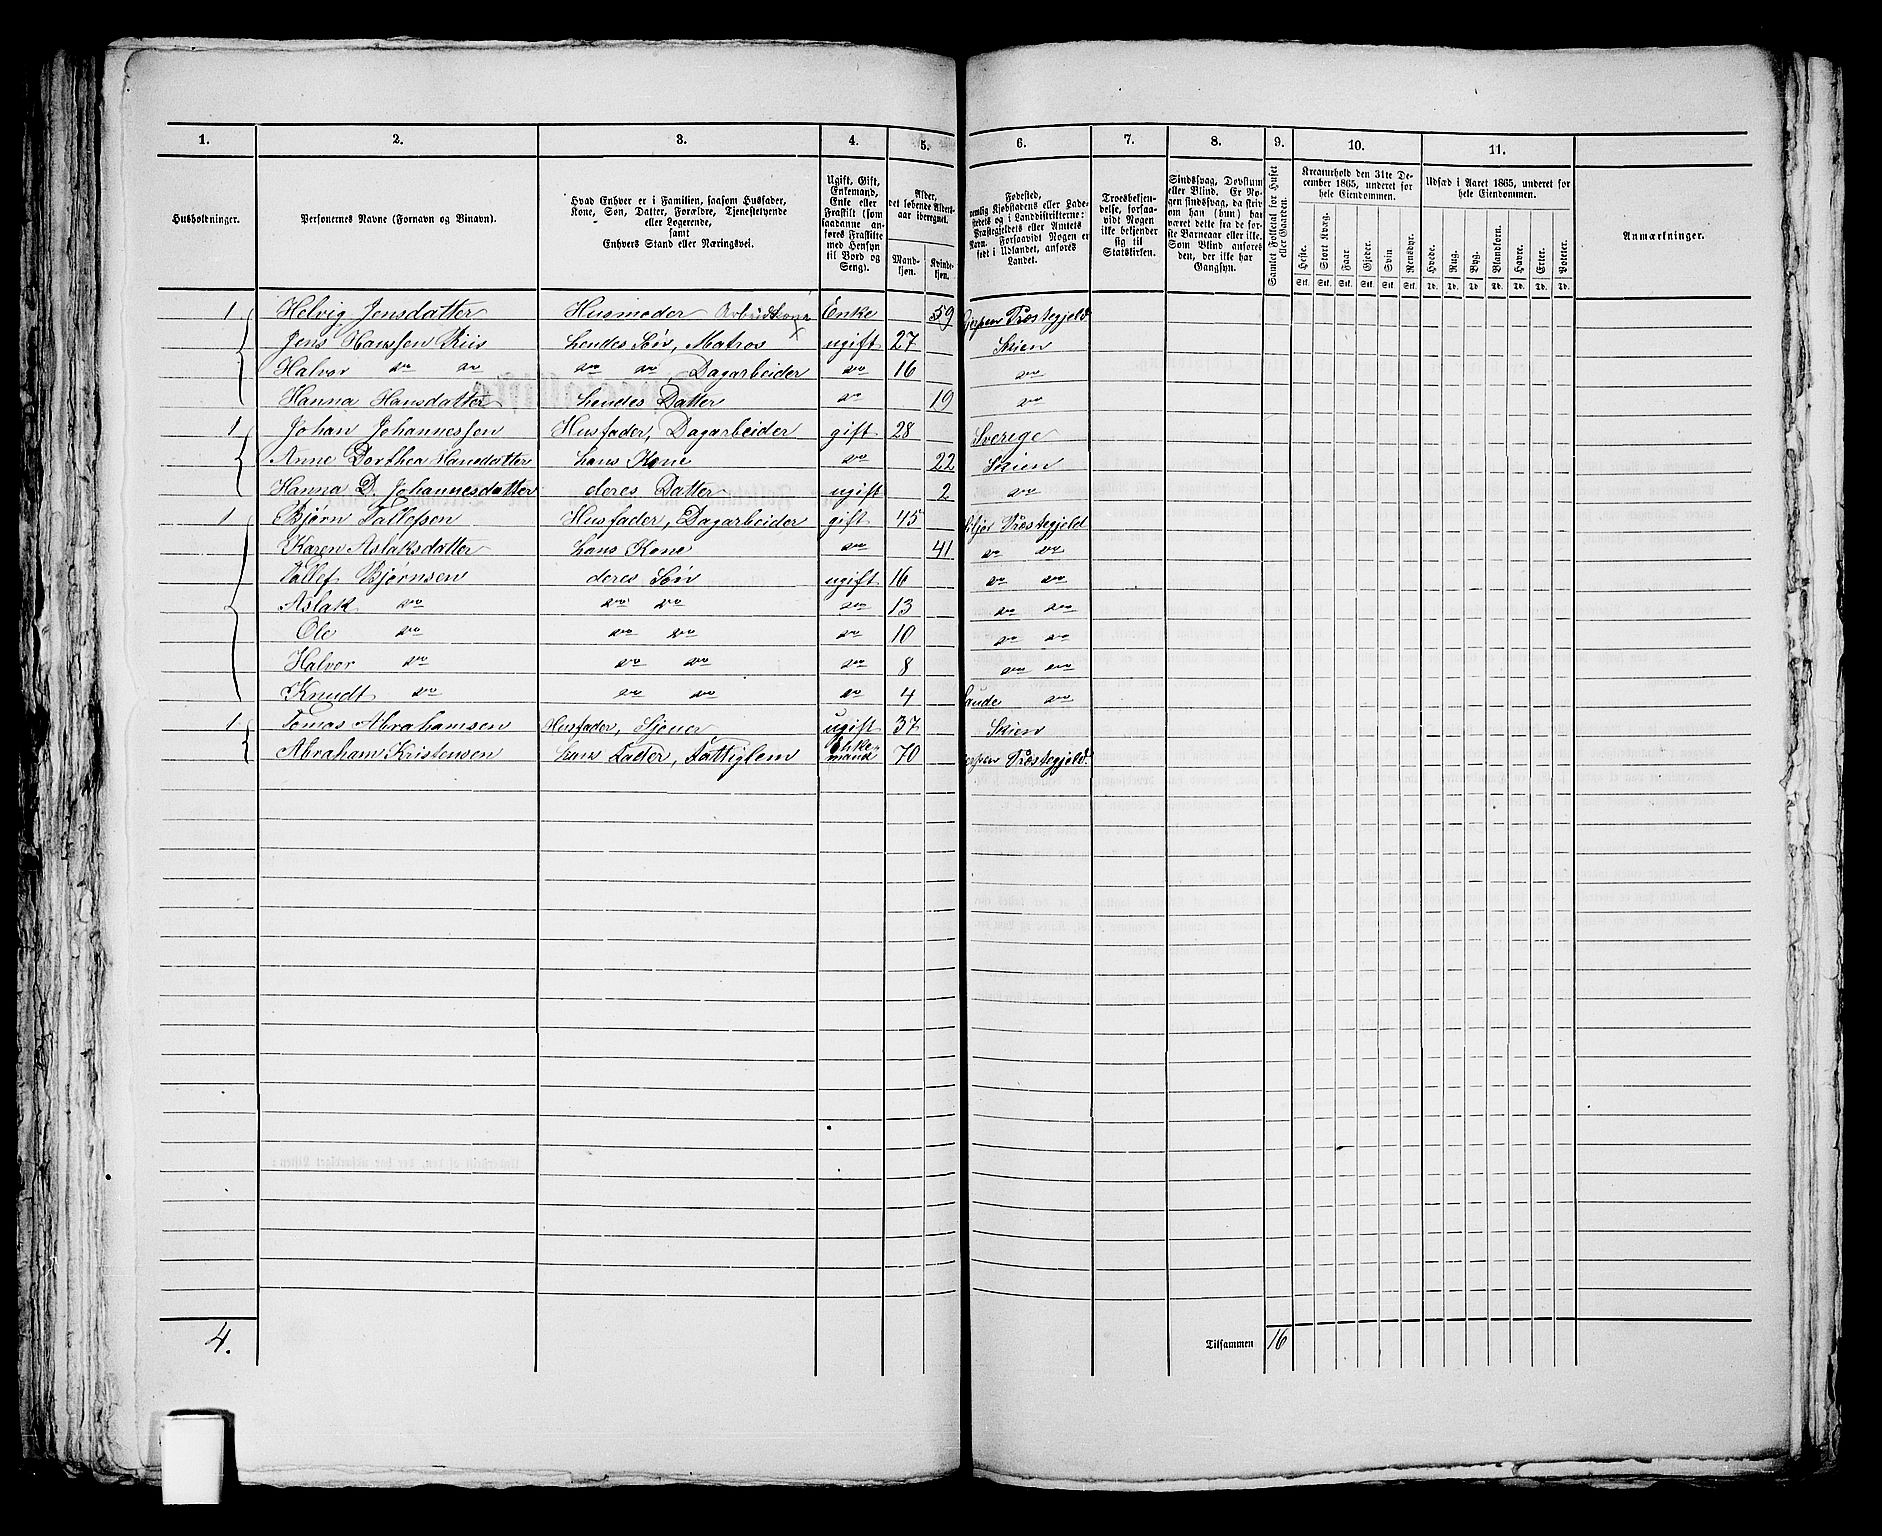 1. 2. 3. 4. 5. 6. 7. 8. 9. 10. 11.
Husholdninger.
Personernes Navne (Fornavn og Binavn).
Hvad Enhver er i Familien, saasom Husfader,
Kone, Søn, Datter, Forældre, Tjenestetyende
eller Logerende,
samt
Enhvers Stand eller Næringsvei.
Ugift, Gift,
Enkemand,
Enke eller
Fraskilt (som
saadanne an-
føres Fraskilte
med Hensyn
til Bord og
Seng).
Alder,
det løbende Alders-
aar iberegnet.
Mand-
kjøn.
Kvinde-
kjøn.
Fødested,
nemlig Kjøbstadens eller Lade-
stedets og i Landdistrikterne:
Præstegjeldets eller Amtets
Navn. Forsaavidt Nogen er
født i Udlandet, anføres
Landet.
Troesbekjen-
delse, forsaa-
vidt Nogen
ikke bekjender
sig til
Statskirken.
Sindssvag, Døvstum
eller Blind. Er No-
gen sindssvag, da skriv
om han (hun) har
været dette fra de før-
ste Barneaar eller ikke.
Som Blind anføres
den, der ikke har
Gangsyn.
Samlet Folketal for Huset
eller Gaarden.
Kreaturhold den 31te De-
cember 1865, underet for
hele Eiendommen.
Heste. Stort Kvæg. Faar. Gjeder. Svin. Rensdyr.
Stk. Stk. Stk. Stk. Stk. Stk.
Udsæd i Aaret 1865, underet for
hele Eiendommen.
Hvede. Rug. Byg. Blandkorn. Havre. Erter. Poteter.
Td. Td. Td. Td. Td. Td. Td.
Anmærkninger.
1 Helvig Jensdatter Husmoder Arbeidskone Enke 59 Gjerpen Præstegjeld
Jens Hanssen Riis hendes Søn, Matros × ugift 27 Skien
Halvor do do do do, Dagarbeider do 16 do
Hanna Hansdatter hendes Datter do 19 do
1 Johan Johannessen Husfader, Dagarbeider gift 28 Sverige
Anne Dorthea Hansdatter hans Kone do 22 Skien
Hanna D. Johannesdatter deres Datter ugift 2 do
1 Bjørn Tallefsen Husfader, Dagarbeider gift 45 Siljor Præstegjeld
Karen Aslaksdatter hans Kone do 41 do do
Tallef Bjørnsen deres Søn ugift 16 do do
Aslak do do do do 13 do do
Ole do do do do 10 do do
Halvor do do do do 8 do do
Knudt do do do do 4 Saude do
1 Tomas Abrahamsen Husfader, Sjouer ugift 37 Skien
Abraham Kristensen hans Fader, Fattiglem Enke-
mand 70 Gjerpen Præstegjeld
4.
Tilsammen 16